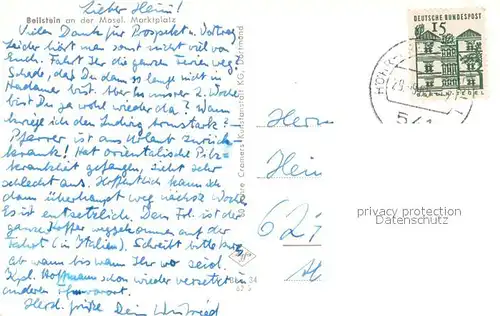 Lieber Heini!
Beilstein an der Mosel. Marktplatz
Vielen Dank für Prospekt u. Vortrag
Leider hört man sonst nicht viel von
Euch. Fahrt Ihr die ganzen Ferien weg?
Schade, daß Du dann so lange nicht in
Hadamar bist. Aber in unsrer 2. Woche
bist Du ja wohl wieder da? Wann
kriege ich den Ludwig
Pfarrer ist aus Urlaub zurück
krank! Hat orientalische Pilz-
krankheit gefangen, sieht sehr
schlecht aus. Hoffentlich kann ich
dann überhaupt weg nächste Woche.
Es ist entsetzlich. Dem Frl. ist der
ganze Koffer weggekommen auf der
Fahrt (in Italien). Schreibt bitte kurz
ab wann bis wann Ihr wo seid.
Kpl. Hoffmann schon wieder versetzt in
anderen
Herzl. Grüße Dein
Jahre Cramers Kunstanstalt KG, Dortmund
34
DEUTSCHE BUNDESPOST
15
Herrn
Hein
621
privacy protection
Datenschutz